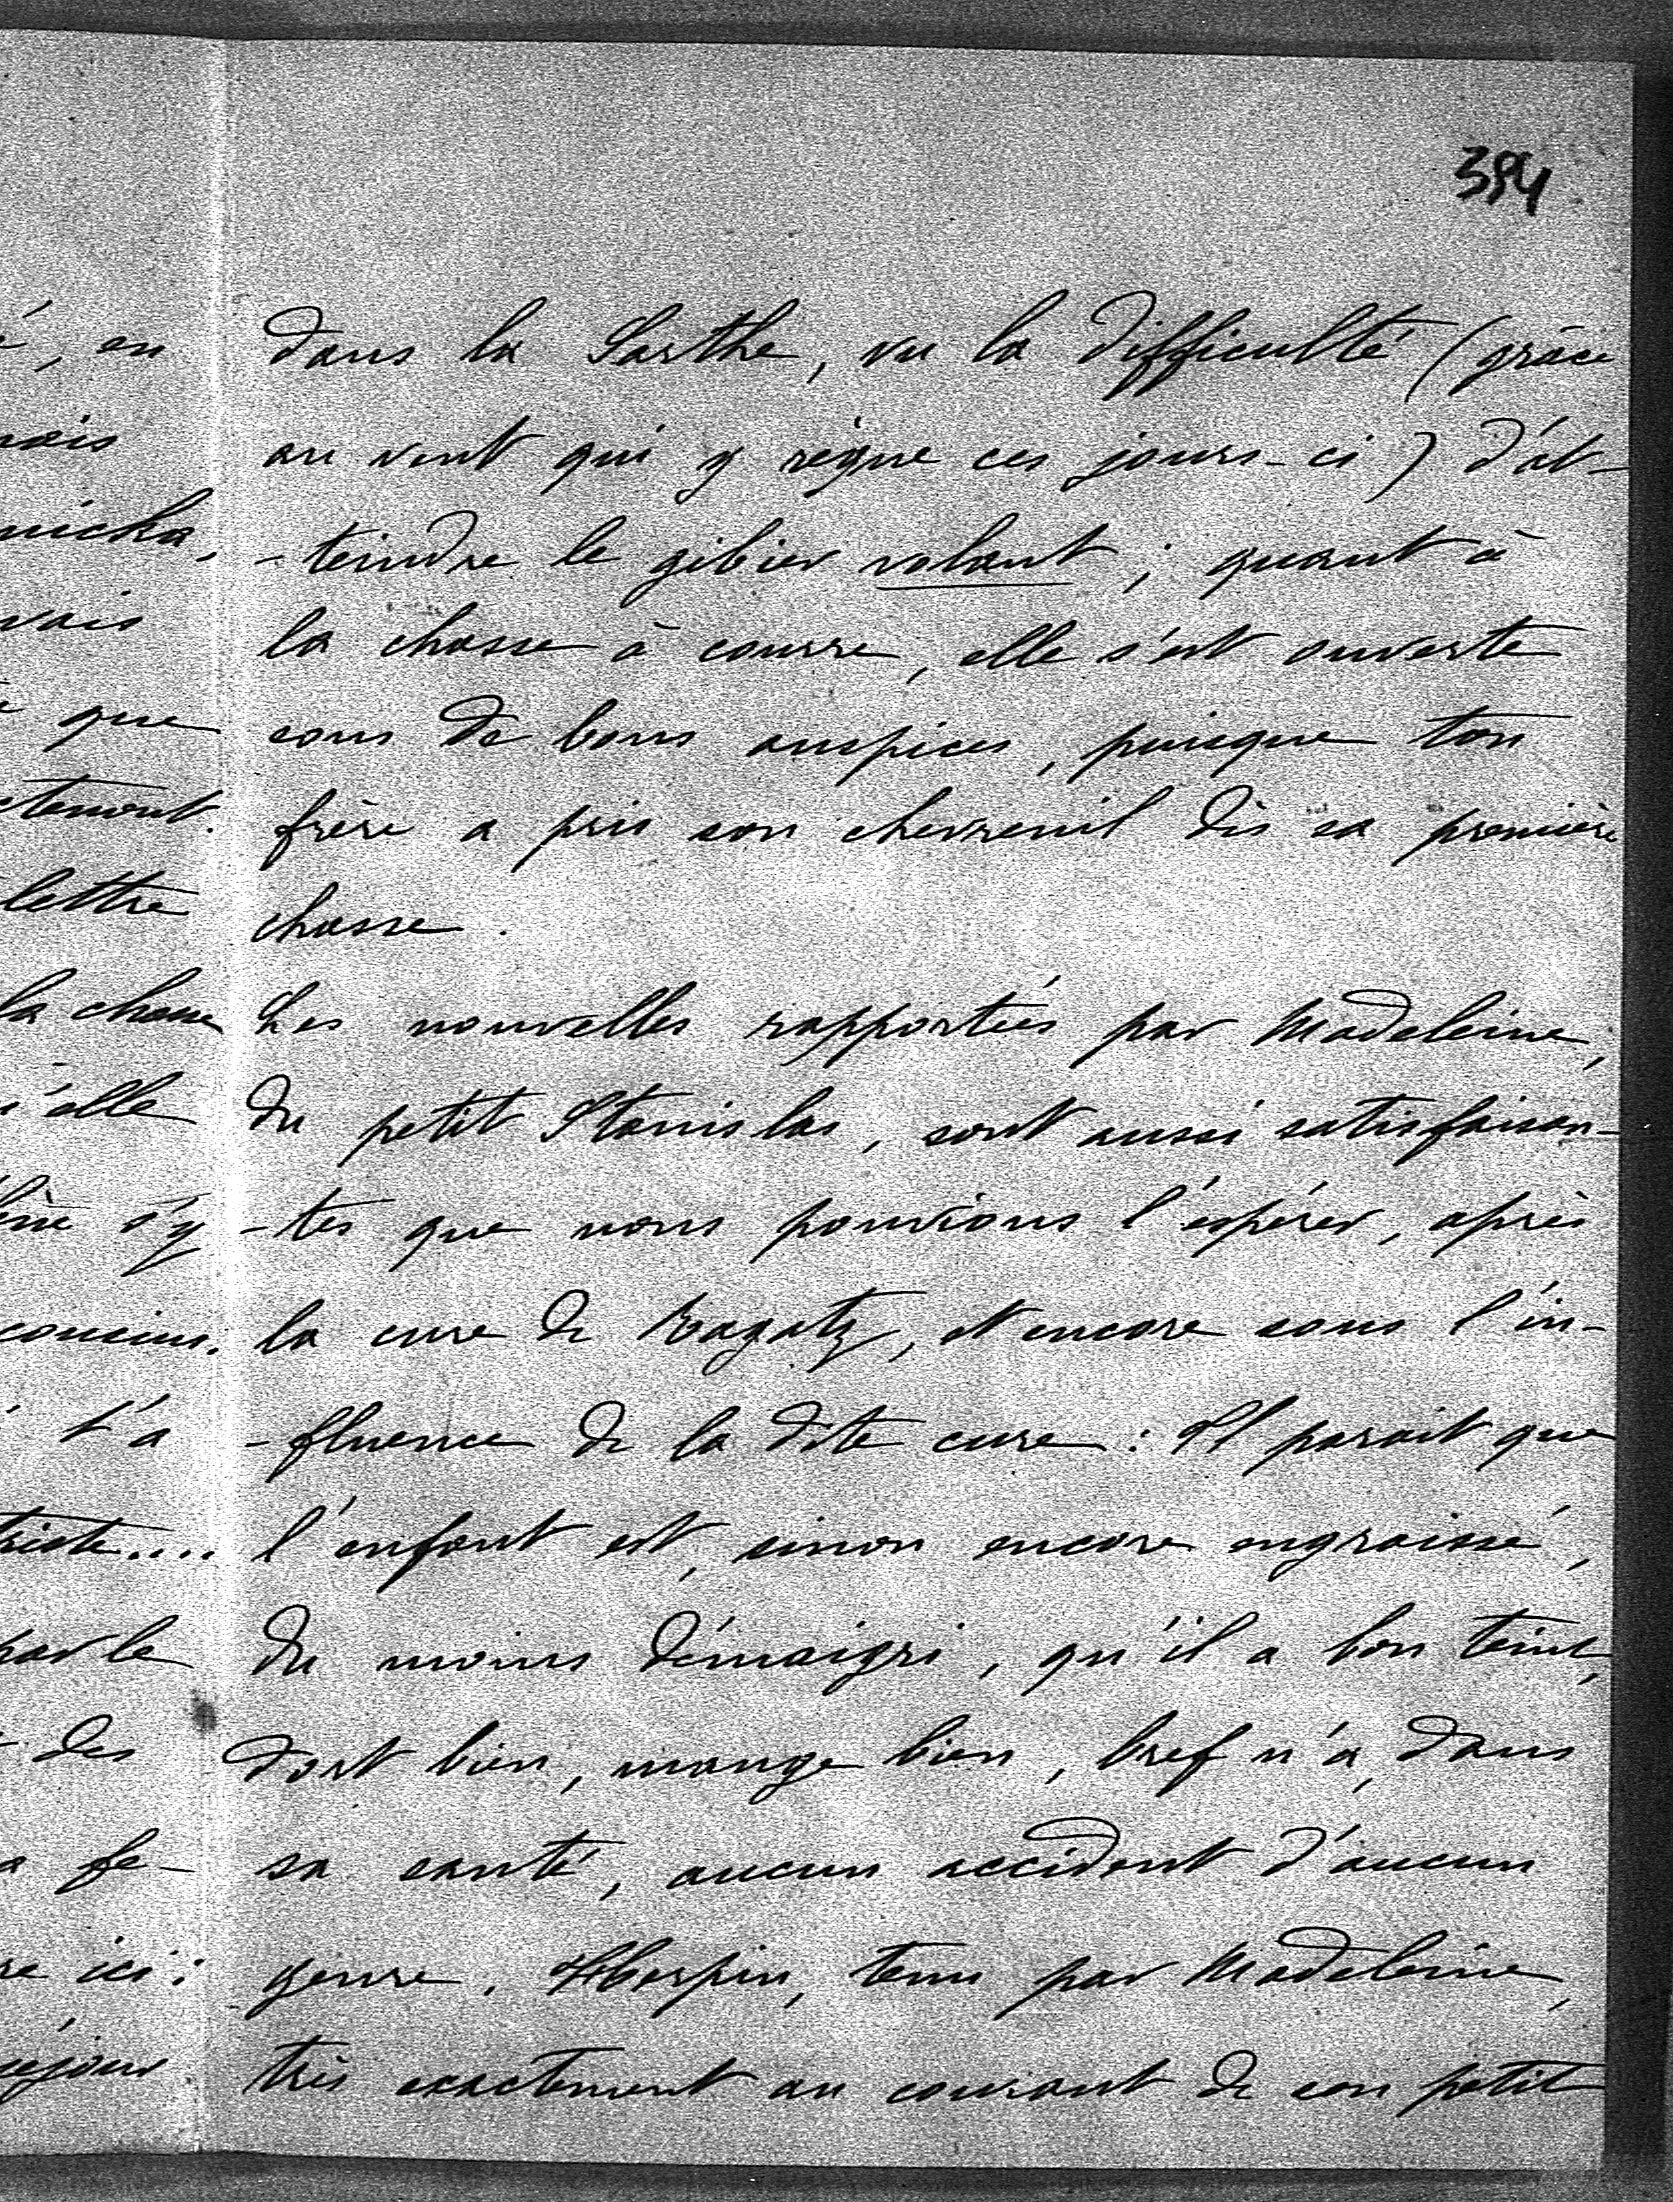 394
dans la Sarthe, vu la difficulté (grâce
au vent qui y règne ces jours-ci) d'at-
-teindre le gibier volant ; quant à
la chasse à courre, elle s'est ouverte
sous de bons auspices, puisque ton
frère a pris son chevreuil dès sa première
chasse.
Les nouvelles rapportées par Madeleine,
du petit Stanislas, sont aussi satisfaisan-
-tes que nous pouvions l'espérer, après
la cure de Ragatz, et encore sous l'in-
-fluence de la dite cure : Il parait que
l'enfant est, sinon encore engraissé,
du moins démaigri, qu'il a bon teint,
dort bien, mange bien, bref n'a, dans
sa santé, aucun accident d'aucun
genre. Herpin, tenu par Madeleine,
très exactement au courant de son petit
é, en
vais
que
lettre
la chasse
s'y
cousins.
t'a
triste....
parle
des
fe-
ici :
séjour